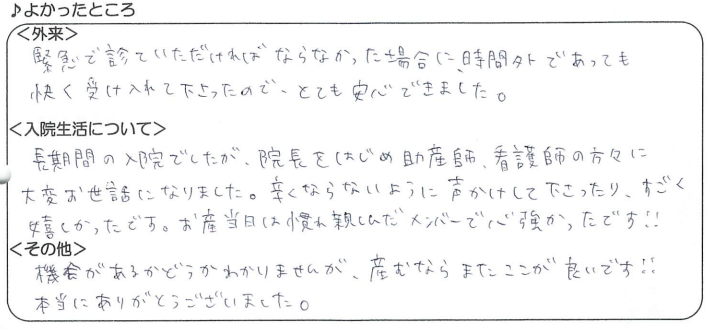 ♪よかったところ
<外来>
緊急で診ていただければならなかった場合に、時間外であっても
快く受け入れて下さったので、とても安心できました。
<入院生活について>
長期間の入院でしたが、院長をはじめ助産師、看護師の方々に
大変お世話になりました。辛くならないように声かけして下さったり、すごく
嬉しかったです。お産当日は慣れ親しんだメンバーで心強かったです!!
<その他>
機会があるかどうかわかりませんが、産むならまたここが良いです!!
本当にありがとうございました。